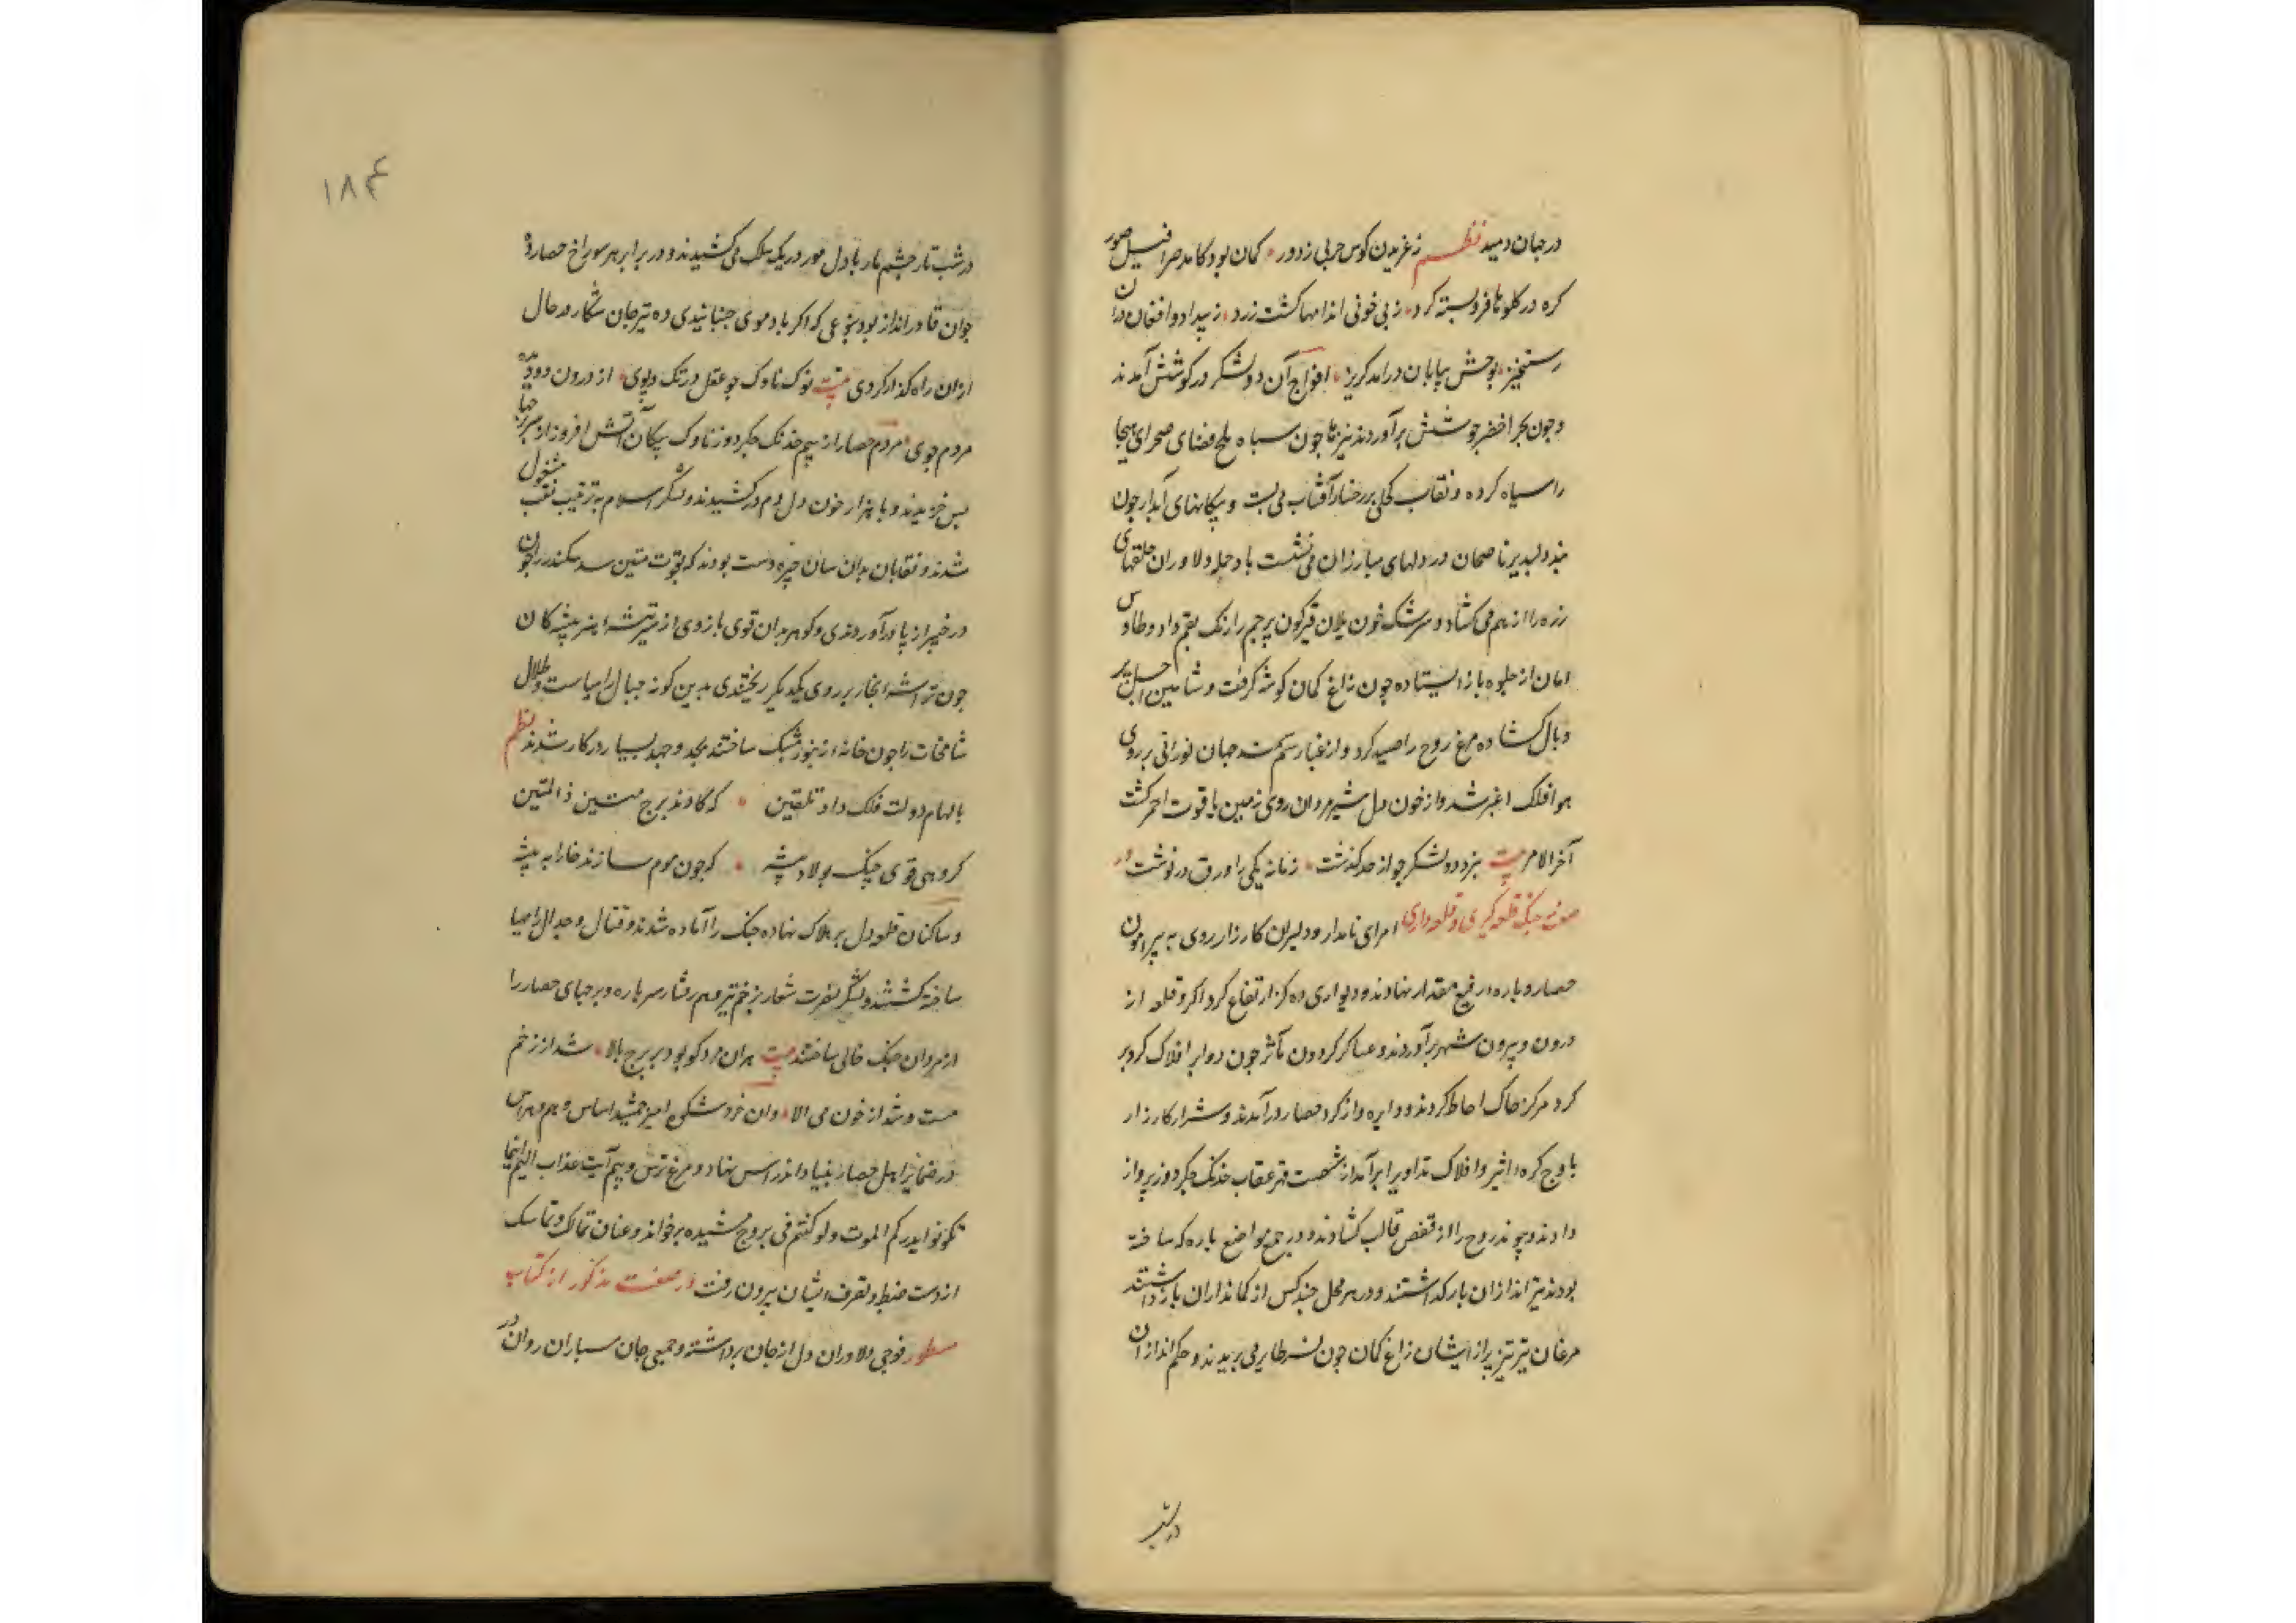 در جهان دمید نظم ز غریدن کوس حربی ز دور کمان بود کامد صرافیل صور
کره در کلوها فرو بسته کرد ز بی خونی اندامها کشت زرد ز بیداد و افغان دران
رستخیز بوحش بیابان درامد کریز افواج آن دو لشکر در کوشش آمدند
و چون بحر اخضر جوشش برآوردند تیرها چون سپاه ملخ فضای صحرای هیجا
را سیاه کرده و نقاب کحلی بر رخسار آفتاب می بست و پیکانهای آبدار چون
پند دلپذیر ناصحان در دلهای مبارزان می نشست باد حمله دلاوران حلقهای
زره را از هم می کشاد و سرشک خون یلان قیرکون پرچم را رنک بقم داد و طاوس
امان از جلوه باز ایستاده چون زاغ کمان کوشه کرفت و شاهین اجل پر
و بال کشاده مرغ روح را صید کرد و از غبار سم سمند جهان نورانی بر روی
هوا فلک اغبر شد و از خون دل شیرمردان روی زمین یاقوت احمر کشت
آخر الامر بیت نبرد دو لشکر چو از حد کذشت زمانه یکی را ورق درنوشت در
صفت جنک قلعه کیری و قلعه داری امرای نامدار و دلیران کارزار روی به پیرامون
حصار و باره رفیع مقدار نهادند و دیواری ده کز ارتفاع کرداکرد قلعه از
درون و بیرون شهر برآوردند و عساکر کردون مآثر چون دوایر افلاک کرد بر
کرد مرکز خاک احاطه کردند و دایره وار کرد حصار درآمدند و شرار کارزار
باوج کره اثیر و افلاک تداویر برآمد از شصت قهر عقاب خدنک جکردوز پرواز
دادند و روح را از قفص قالب کشادند و در جمع مواضع باره که ساخته
بودند تیراندازان بازکداشتند و در هر محل چند کس از کمانداران بازداشتند
مرغان تیز پر از ایشان زاغ کمان چون نسر طایر می پریدند و حکم اندازان
درشب
۱۸۴
در شب تار چشم مار با دل مور در یک سلک می کشیدند و در برابر هر سوراخ حصار ده
جوان قادرانداز بود بنوعی که اکر باد موی جنبانیدی ده تیر جان شکار در حال
ازان راه کذار کردی بیت نوک ناوک چو عقل در تک و پوی از درون دو دیده
مردم جوی مردم حصار از بیم خدنک جکردوز ناوک پیکان آتش افروز از سر جان
پس خزیدند و با هزار خون دل دم درکشیدند و لشکر اسلام به ترتیب نقب مشغول
شدند و نقابان بدان سان چیره دست بودند که بقوت متین سد سکندر را چون
در خیبر از پا درآوردندی و کوهربران قوی بازوی از تیشه هنر پیشه کان
چون تراشه نجار بر روی یکدیکر ریختندی بدین کونه جبال راسیات و تلال
شامخات را چون خانه زنبور مشبک ساختند بجد و جهد بسیار در کار شدند نظم
بالهام دولت فلک داد تلقین که کاوند برج متین ذالمتین
کروهی قوی چنک پولاد پیشه که چون موم سازند خارا به تیشه
و ساکنان قلعه دل بر هلاک نهاده جنک را آماده شدند و قتال و جدال را مهیا
ساخته کشتند و لشکر نصرت شعار بزخم تیر سر باره و برجهای حصار را
از مردان جنک خالی ساختند بیت هران مرد کو بود بر برج بالا شد از زخم
مست و شد از خون می الا وان خردشکی امیر جمشید اساس وهم و هراس
در ضمایر اهل حصار بنیاد اندراس نهاد و مرغ ترس و بیم آیت عذاب الیم اینما
تکونوا یدرکم الموت ولو کنتم فی بروج مشیده برخواند و عنان تمالک و تماسک
از دست ضبط و تصرف ایشان بیرون رفت در صفت مذکور از کتاب
مسطور فوجی دلاوران دل از جان برداشته و جمعی جان سپاران روان در